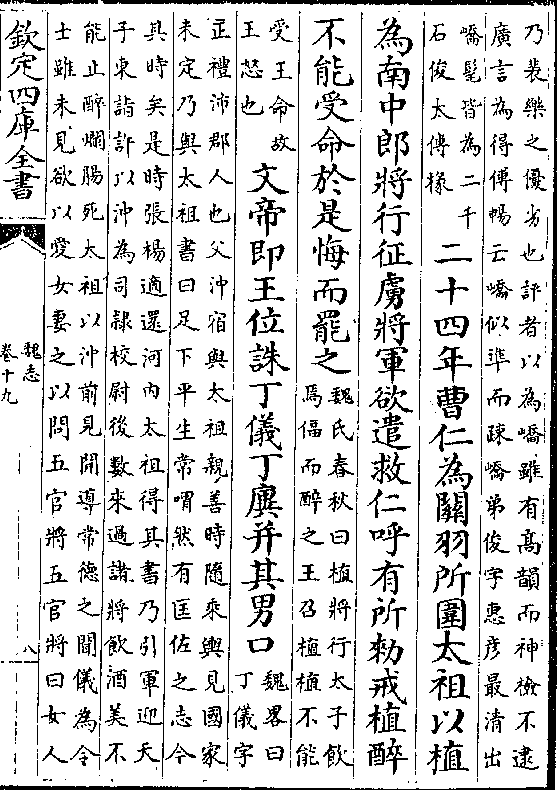 乃裴樂之優劣也評者以為嶠雖有髙韻而神檢不逮
廣言為得傳暢云嶠似準而疎嶠弟俊字惠彦最清出
嶠髦皆為二千
石俊太傅掾
二十四年曹仁為關羽所圍太祖以植
為南中郎將行征虜將軍欲遣救仁呼有所勑戒植醉
不能受命於是悔而罷之
魏氏春秋曰植將行太子飲
焉偪而醉之王召植植不能
受王命故
王怒也
文帝即王位誅丁儀丁廙并其男口
魏畧曰
丁儀字
正禮沛郡人也父沖宿與太祖親善時隨乘輿見國家
未定乃與太祖書曰足下平生常喟然有匡佐之志今
其時矣是時張楊適還河内太祖得其書乃引軍迎天
子東詣許以沖為司隷校尉後數來過諸將飲酒美不
能止醉爛腸死太祖以沖前見開導常德之聞儀為令
士雖未見欲以愛女妻之以問五官將五官將曰女人
欽定四庫全書
魏志
卷十九
八